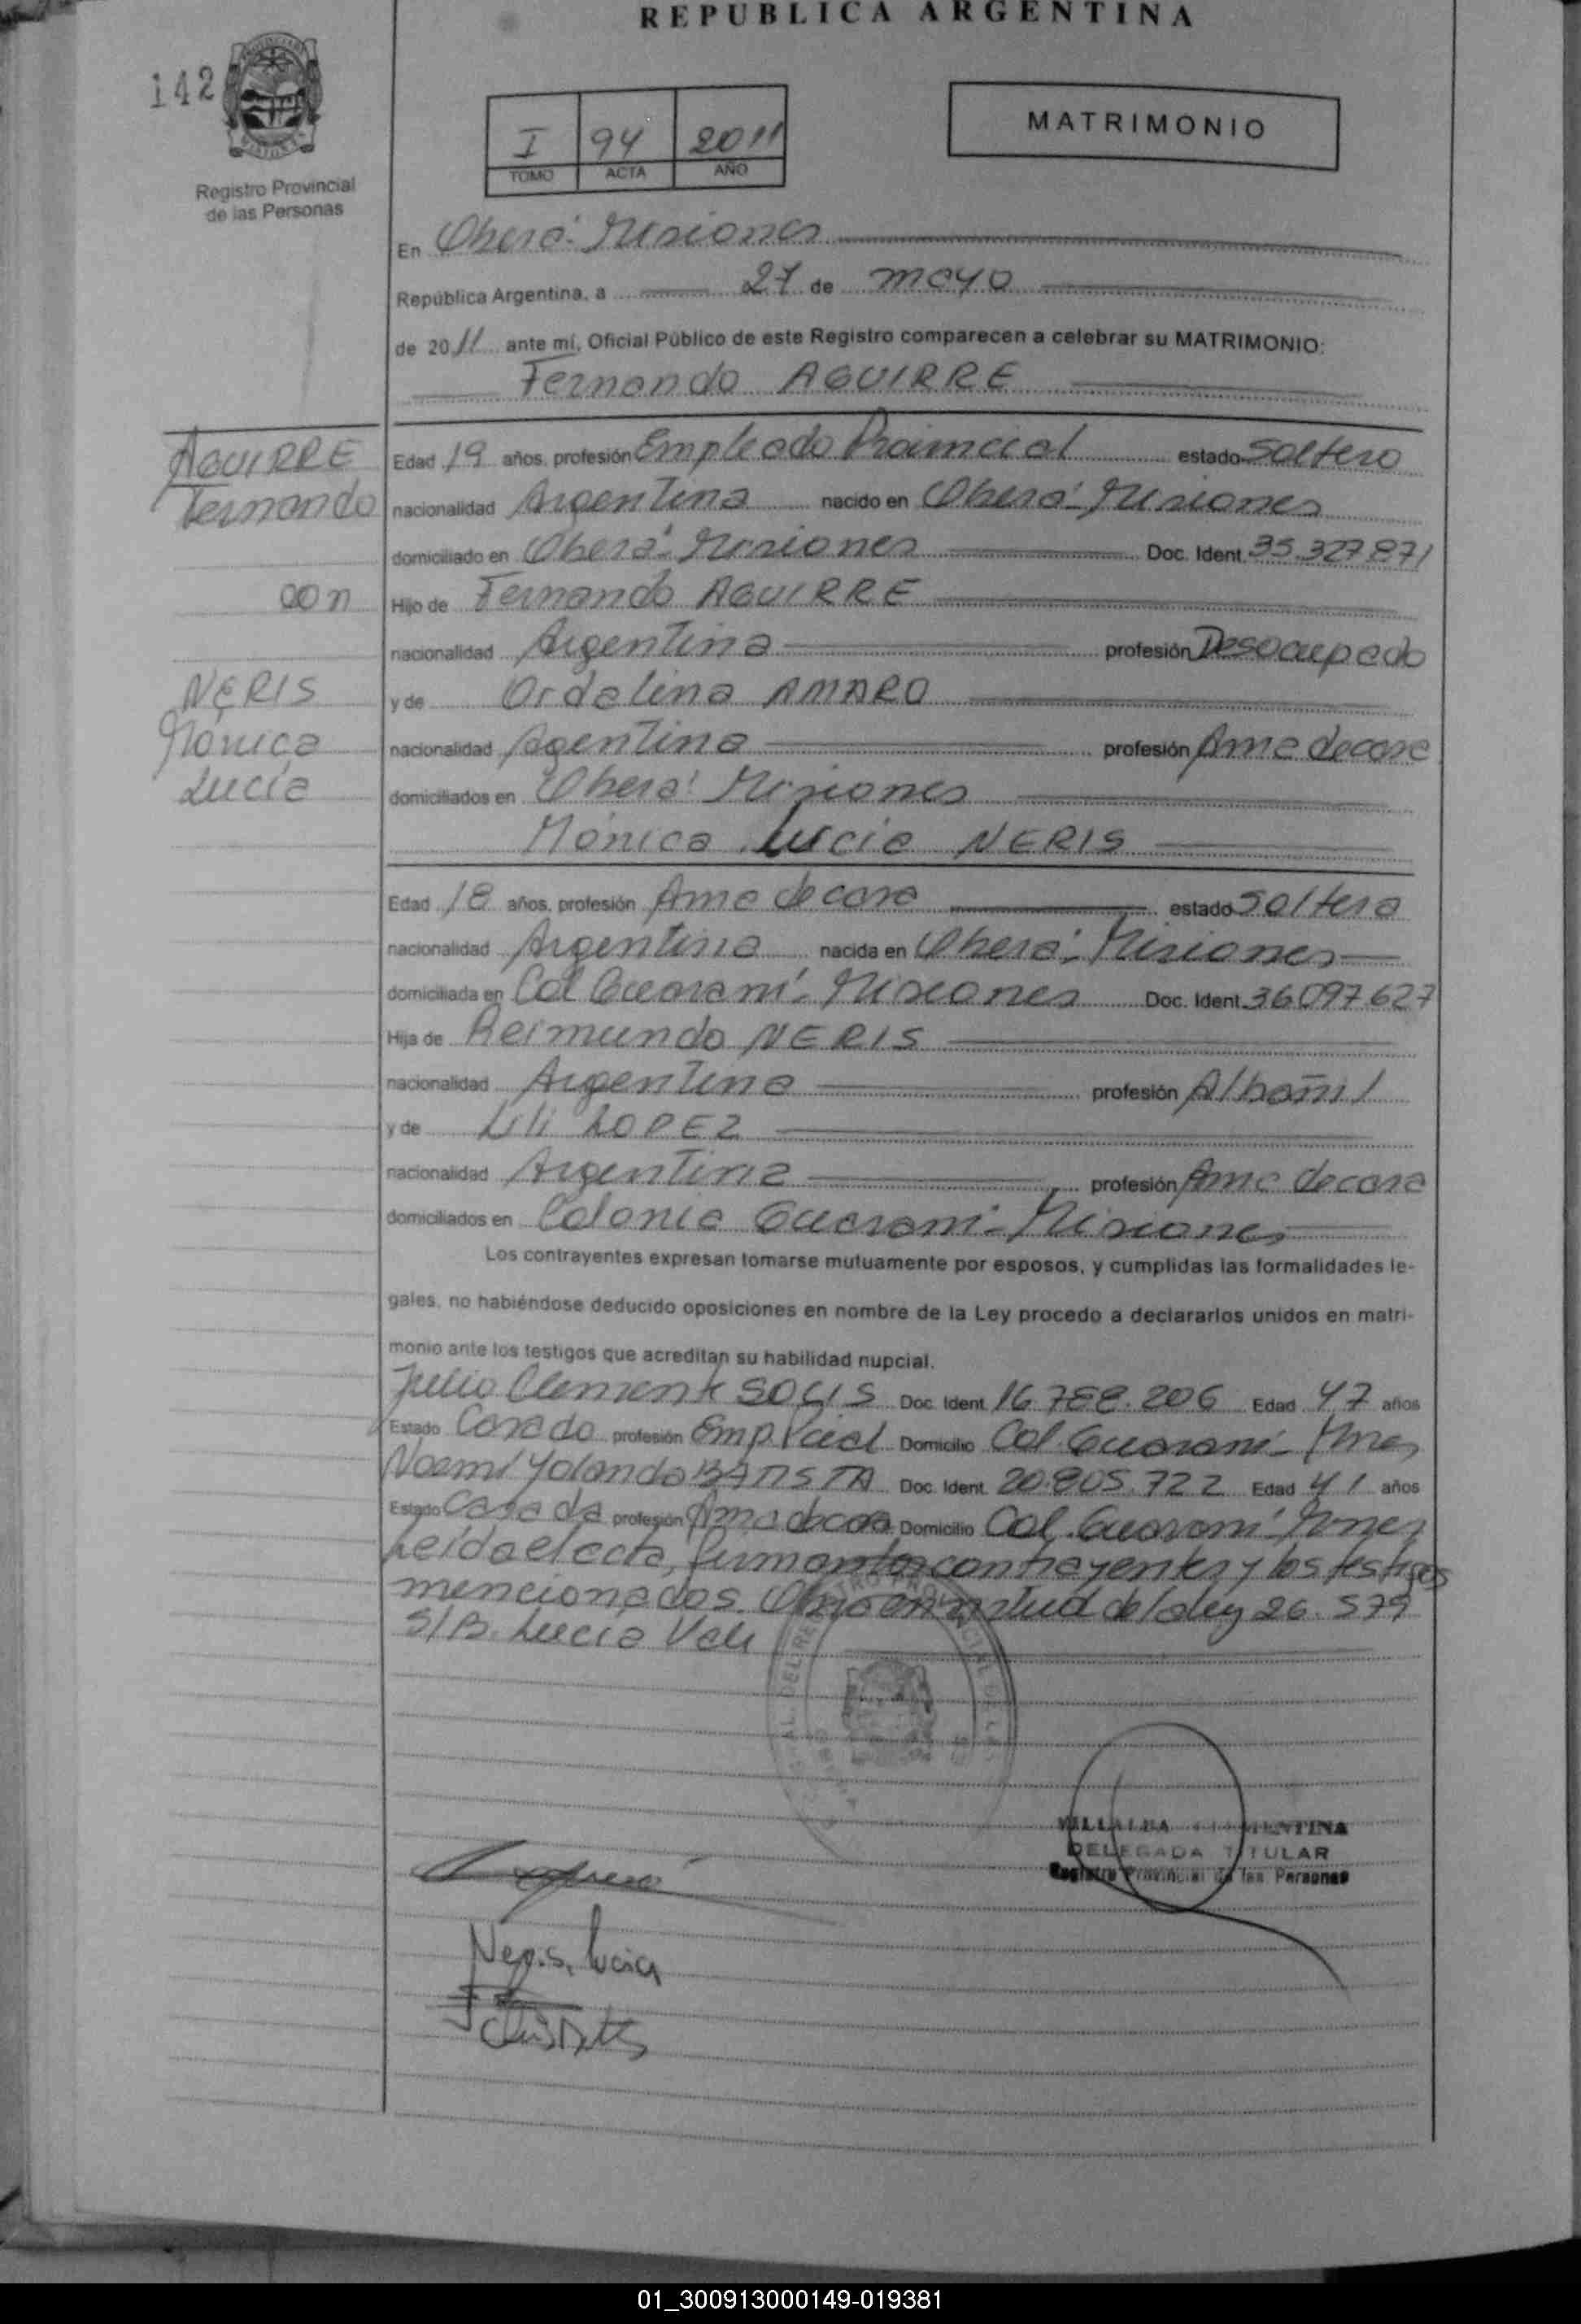 REPUBLICA ARGENTINA
142
I 94 2011
TOMO ACTA AÑO
MATRIMONIO
Registro Provincial
de las Personas
En Oberá - Misiones
República Argentina, a 27 de mayo
de 2011 ante mí, Oficial Público de este Registro comparecen a celebrar su MATRIMONIO:
Fernando AGUIRRE
AGUIRRE
Fernando
con
NERIS
Mónica
Lucía
Edad 19 años, profesión Empleado Provincial estado Soltero
nacionalidad Argentina nacido en Oberá - Misiones
domiciliado en Oberá - Misiones Doc. Ident. 35.327.871
Hijo de Fernando AGUIRRE
nacionalidad Argentina profesión Desocupado
y de Ordalina AMARO
nacionalidad Agentina profesión Ama de casa
domiciliados en Oberá - Misiones
Mónica Lucía NERIS
Edad 18 años, profesión Ama de casa estado Soltera
nacionalidad Argentina nacida en Oberá - Misiones
domiciliada en Col Guaraní - Misiones Doc. Ident. 36.097.627
Hija de Reimundo NERIS
nacionalidad Argentina profesión Albañil
y de Lili LOPEZ
nacionalidad Argentina profesión Ama de casa
domiciliados en Colonia Guaraní - Misiones
Los contrayentes expresan tomarse mutuamente por esposos, y cumplidas las formalidades le-
gales, no habiéndose deducido oposiciones en nombre de la Ley procedo a declararlos unidos en matri-
monio ante los testigos que acreditan su habilidad nupcial.
Julio Clemente SOLIS Doc. Ident. 16.788.206 Edad 47 años
Estado Casado profesión Emp. Pcial Domicilio Col. Guaraní - Mnes
Noemí Yolanda BATISTA Doc. Ident. 20.805.722 Edad 41 años
Estado Casada profesión Ama de casa Domicilio Col. Guaraní - Mnes
Leída el acta, firman los contrayentes y los testigos
mencionados. en virtud de la ley 26.579
S/B. Lucía Vale
VILLALBA CLEMENTINA
DELEGADA TITULAR
Registro Provincial de las Personas
Neris, Lucia
01_300913000149-019381